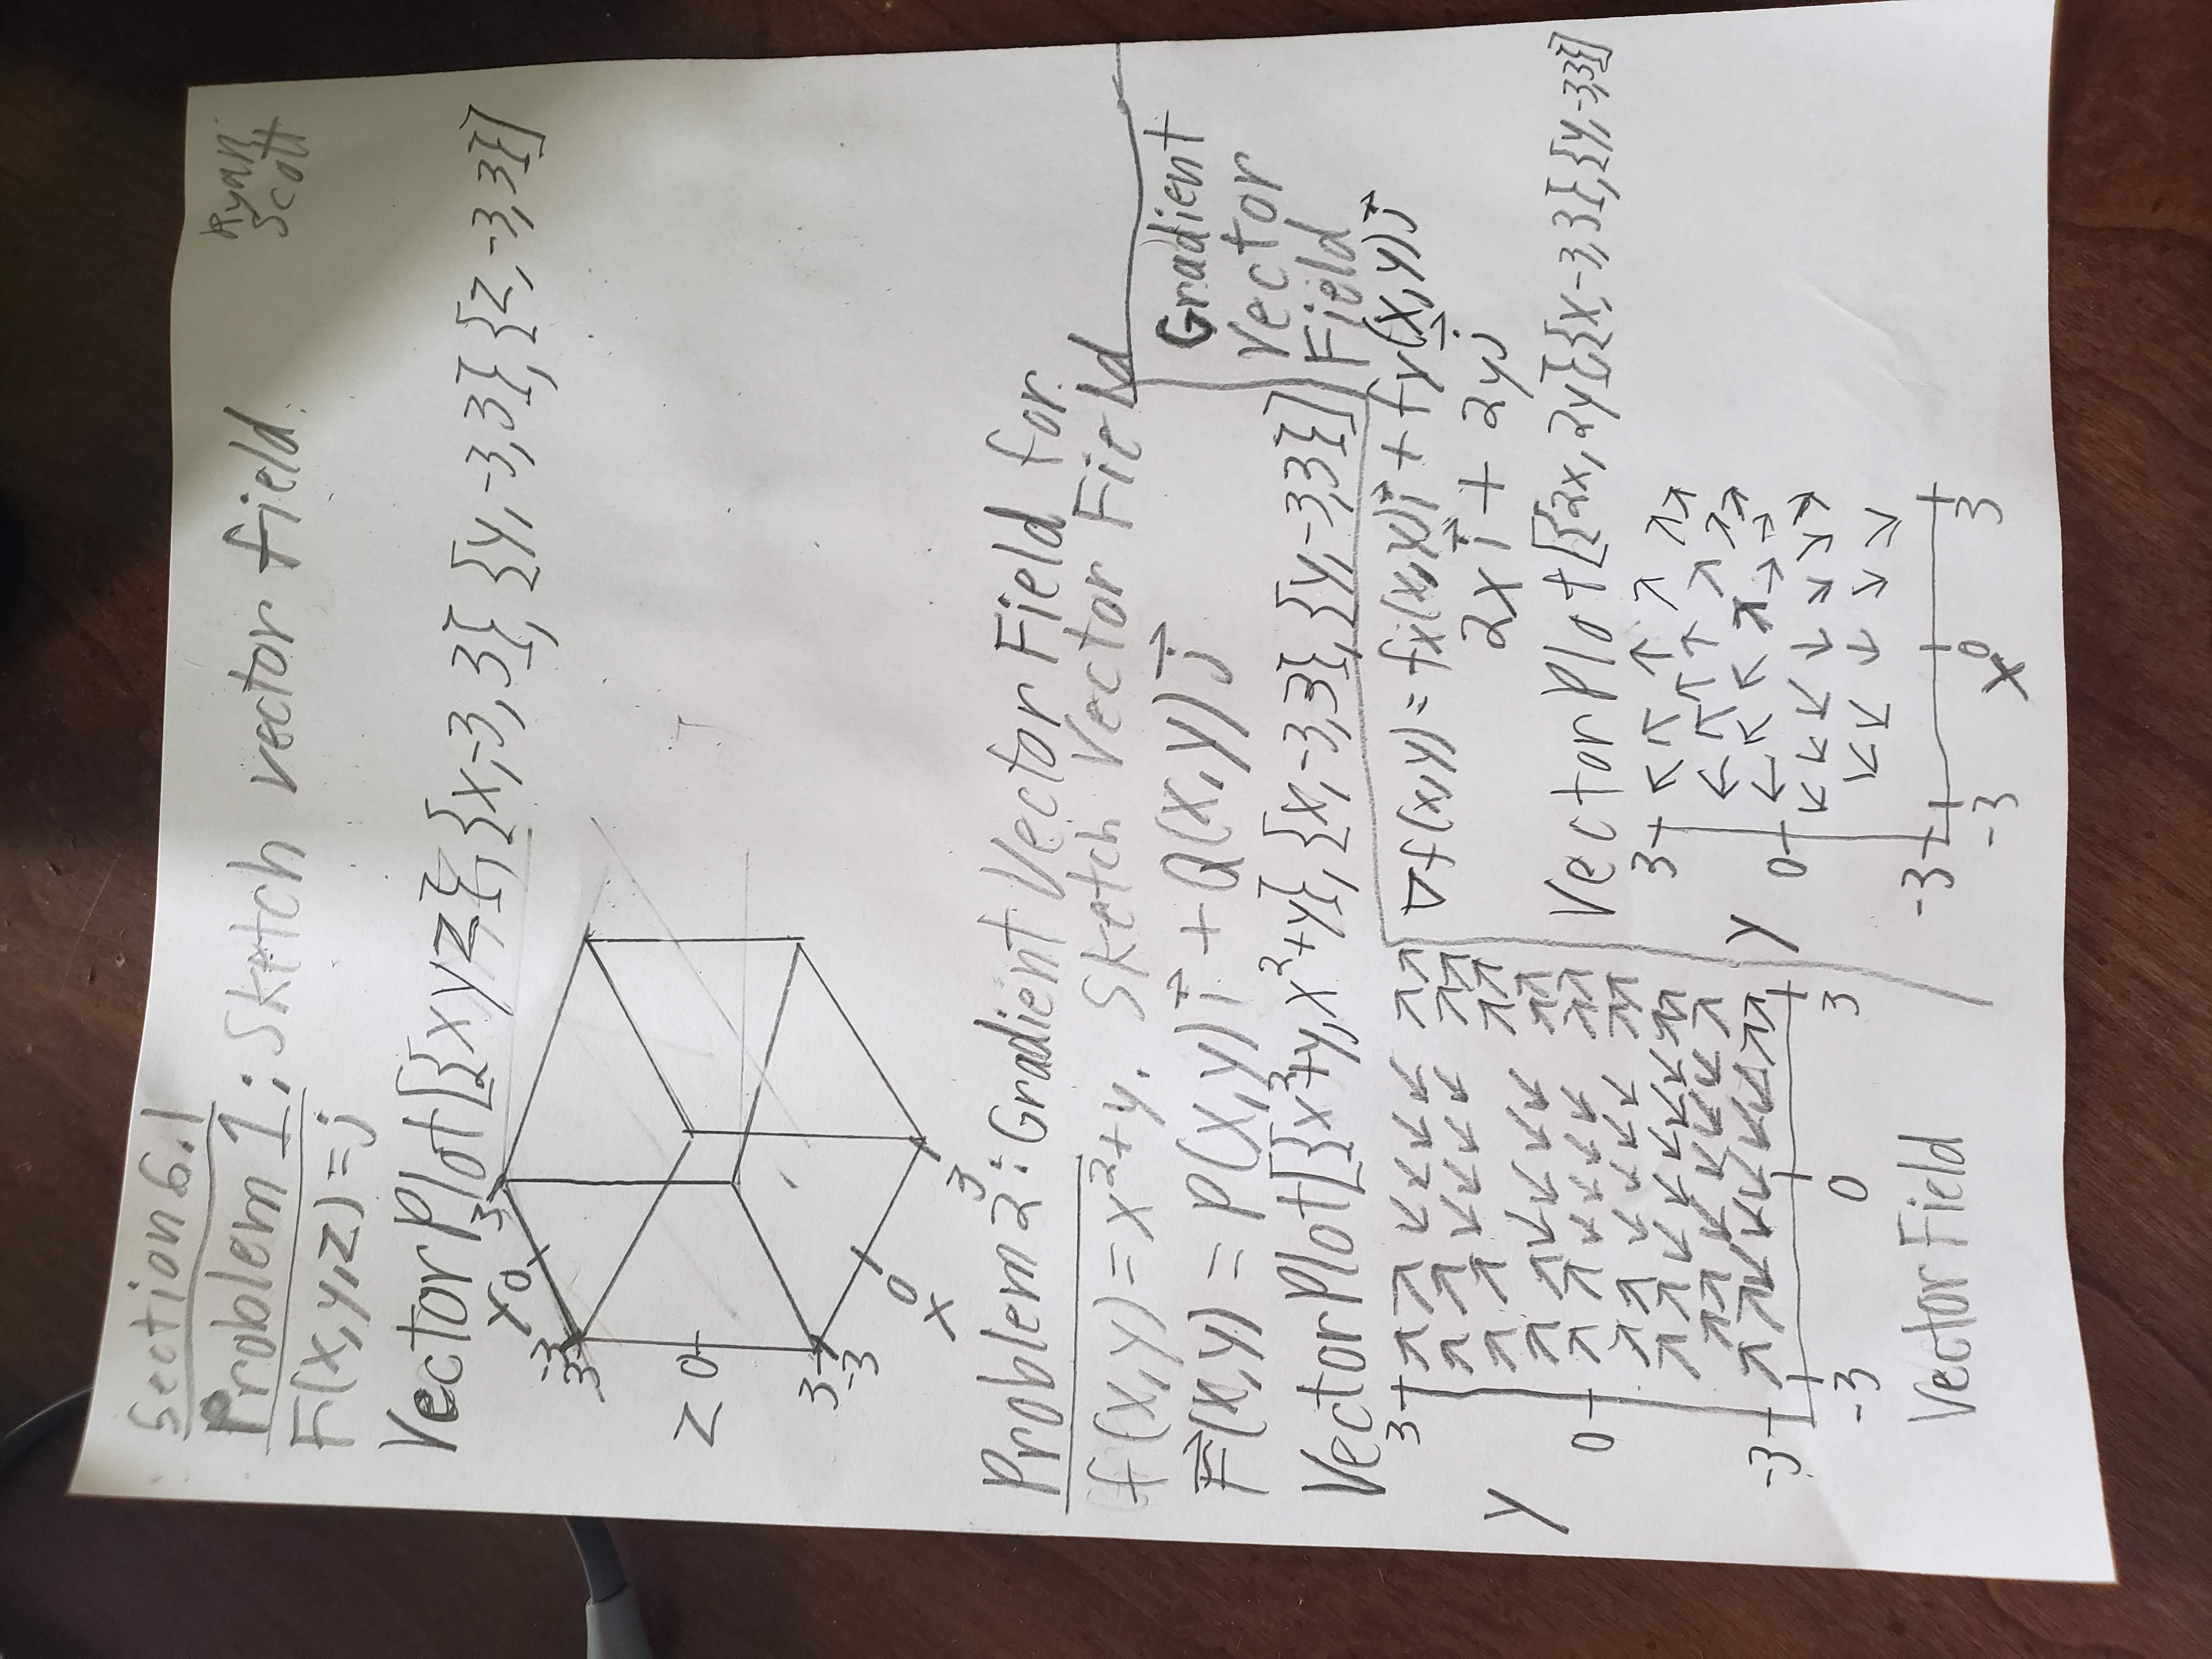 Section 6.1
Problem 1: Sketch vector field.
Ryan Scott
F(x,y,z)=j
VectorPlot[{xyz},{x,-3,3},{y,-3,3},{z,-3,3}]
3
Y 0
-3
3
Z 0
3
-3
0
X
3
Problem 2: Gradient Vector Field for
f(x,y)=x²+y. Sketch Vector Field
F⃗(x,y) = P(x,y)i⃗ + Q(x,y)j⃗
VectorPlot[{x²+y,x²+y},{x,-3,3},{y,-3,3}]
Gradient
Vector
Field
3
Y
0
-3
-3 0 3
Vector Field
∇f(x,y)=fx(x,y)i⃗+fy(x,y)j⃗
2xi⃗ + 2yj⃗
VectorPlot[{2x,2y},{x,-3,3},{y,-3,3}]
3
Y
0
-3
-3 0 3
X